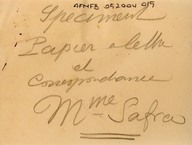 AFMFB 052004 015
Specimen
Papier à lettre
et
Correspondance
Mme Safra